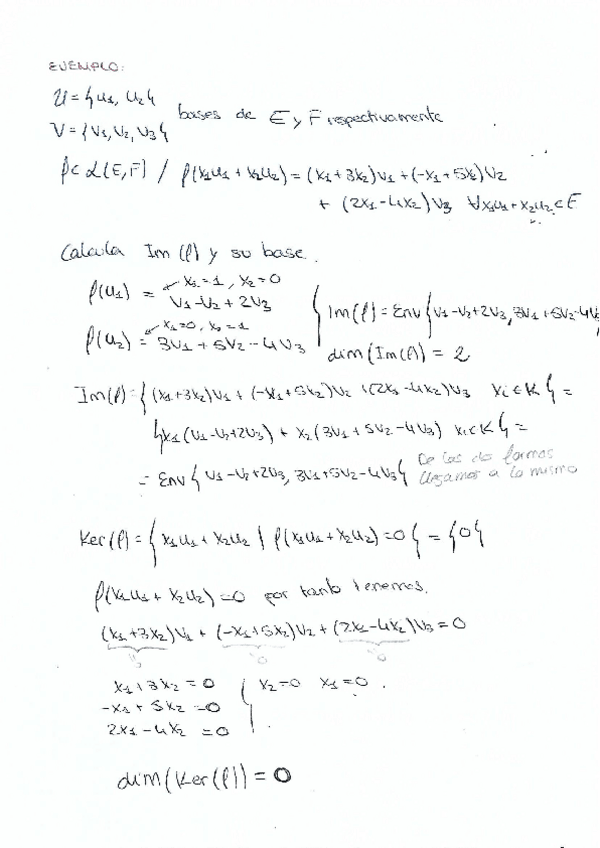 EJEMPLO:
U = {u1, u2}
V = {v1, v2, v3} bases de E y F respectivamente
f ∈ L(E,F) / f(x1u1 + x2u2) = (x1+3x2)v1 + (-x1+5x2)v2
+ (2x1-4x2)v3 ∀x1u1+x2u2 ∈ E
Calcula Im(f) y su base.
x1=1, x2=0
f(u1) = v1-v2+2v3
x1=0, x2=1
f(u2) = 3v1+5v2-4v3
Im(f) = Env{v1-v2+2v3, 3v1+5v2-4v3
dim(Im(f)) = 2
Im(f) = {(x1+3x2)v1 + (-x1+5x2)v2 + (2x1-4x2)v3 xi ∈ K} =
{x1(v1-v2+2v3) + x2(3v1+5v2-4v3) xi ∈ K} =
= Env{v1-v2+2v3, 3v1+5v2-4v3} De las dos formas
llegamos a lo mismo
Ker(f) = {x1u1 + x2u2 | f(x1u1+x2u2) = 0} = {0}
f(x1u1 + x2u2) = 0 por tanto tenemos.
(x1+3x2)v1 + (-x1+5x2)v2 + (2x1-4x2)v3 = 0
x1+3x2 = 0
-x1+5x2 = 0
2x1-4x2 = 0
x2=0 x1=0.
dim(Ker(f)) = 0